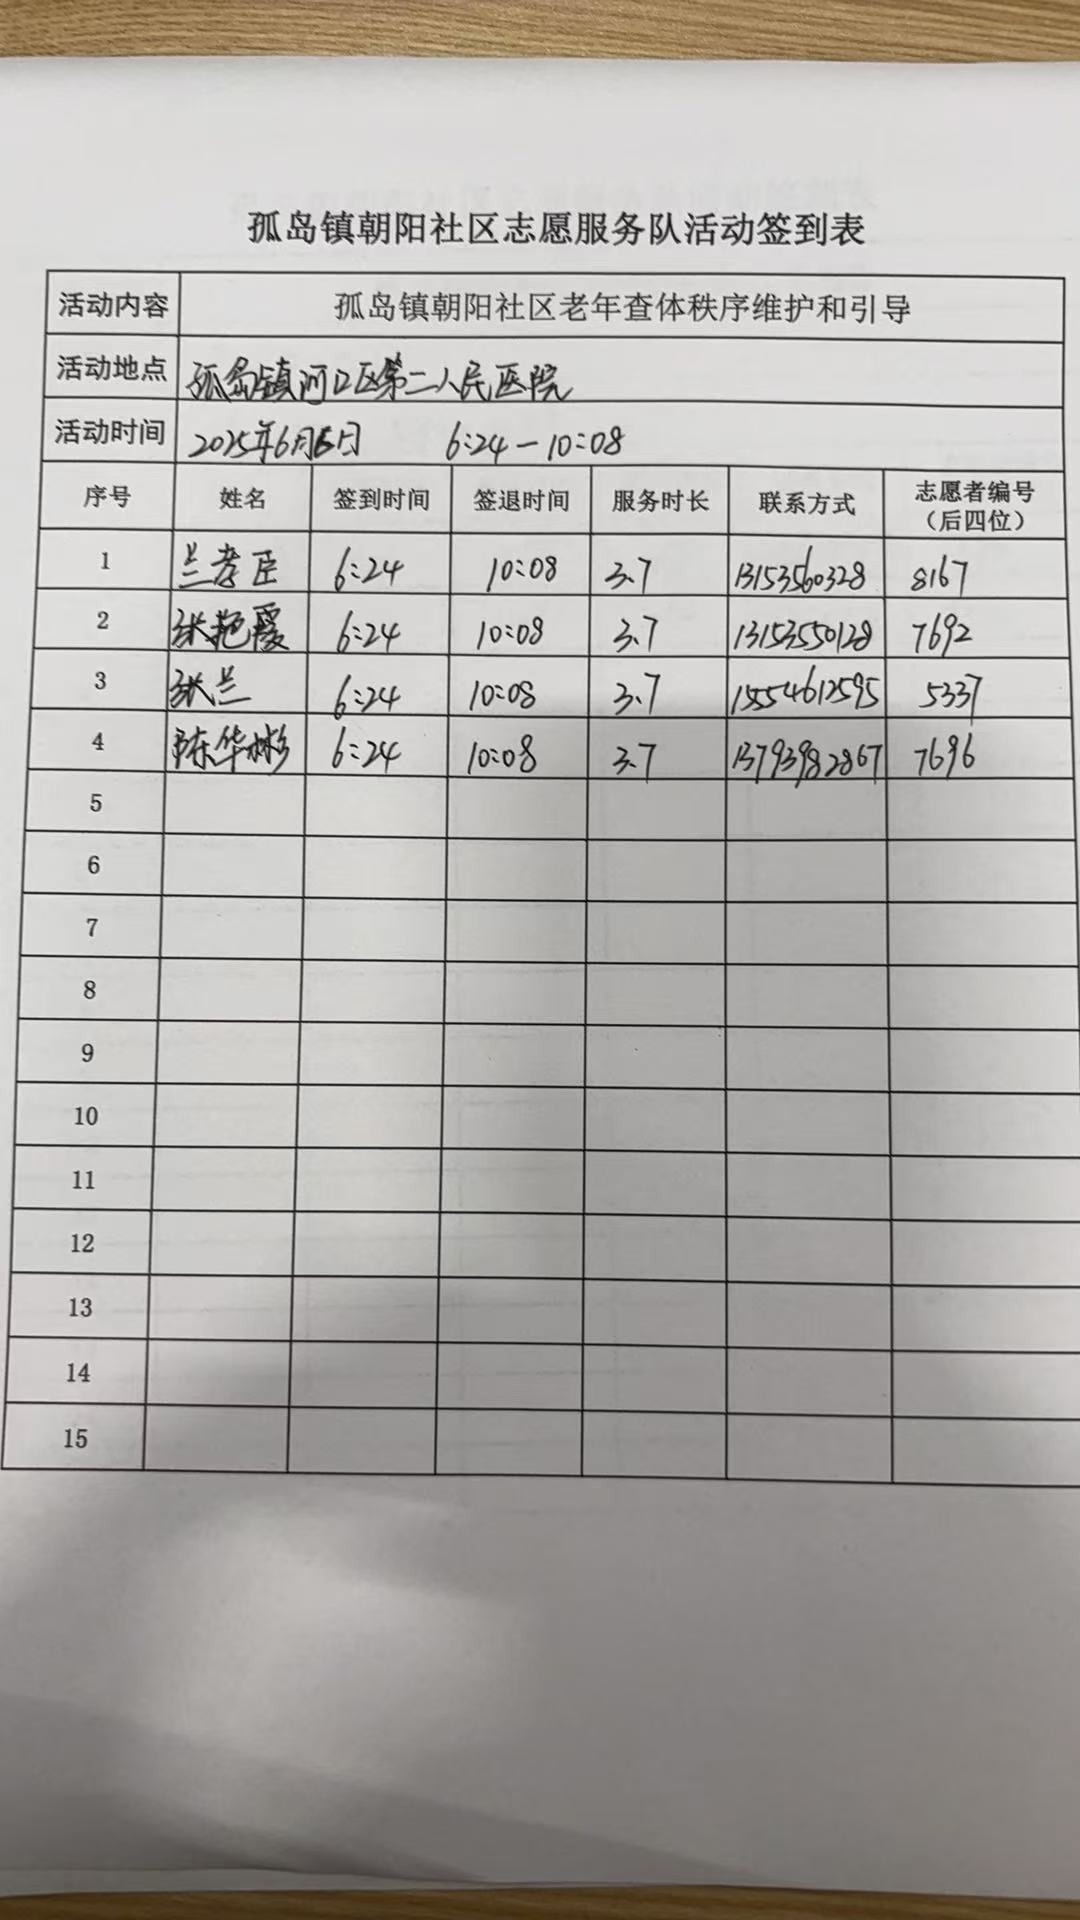 孤岛镇朝阳社区志愿服务队活动签到表
活动内容 孤岛镇朝阳社区老年查体秩序维护和引导
活动地点 孤岛镇河口区第二人民医院
活动时间 2025年6月6日 6:24-10:08
序号 姓名 签到时间 签退时间 服务时长 联系方式 志愿者编号（后四位）
1 兰孝臣 6:24 10:08 3.7 13153560328 8167
2 张艳霞 6:24 10:08 3.7 13153550128 7692
3 张兰 6:24 10:08 3.7 15554612595 5337
4 陈华彬 6:24 10:08 3.7 13793982867 7696
5
6
7
8
9
10
11
12
13
14
15